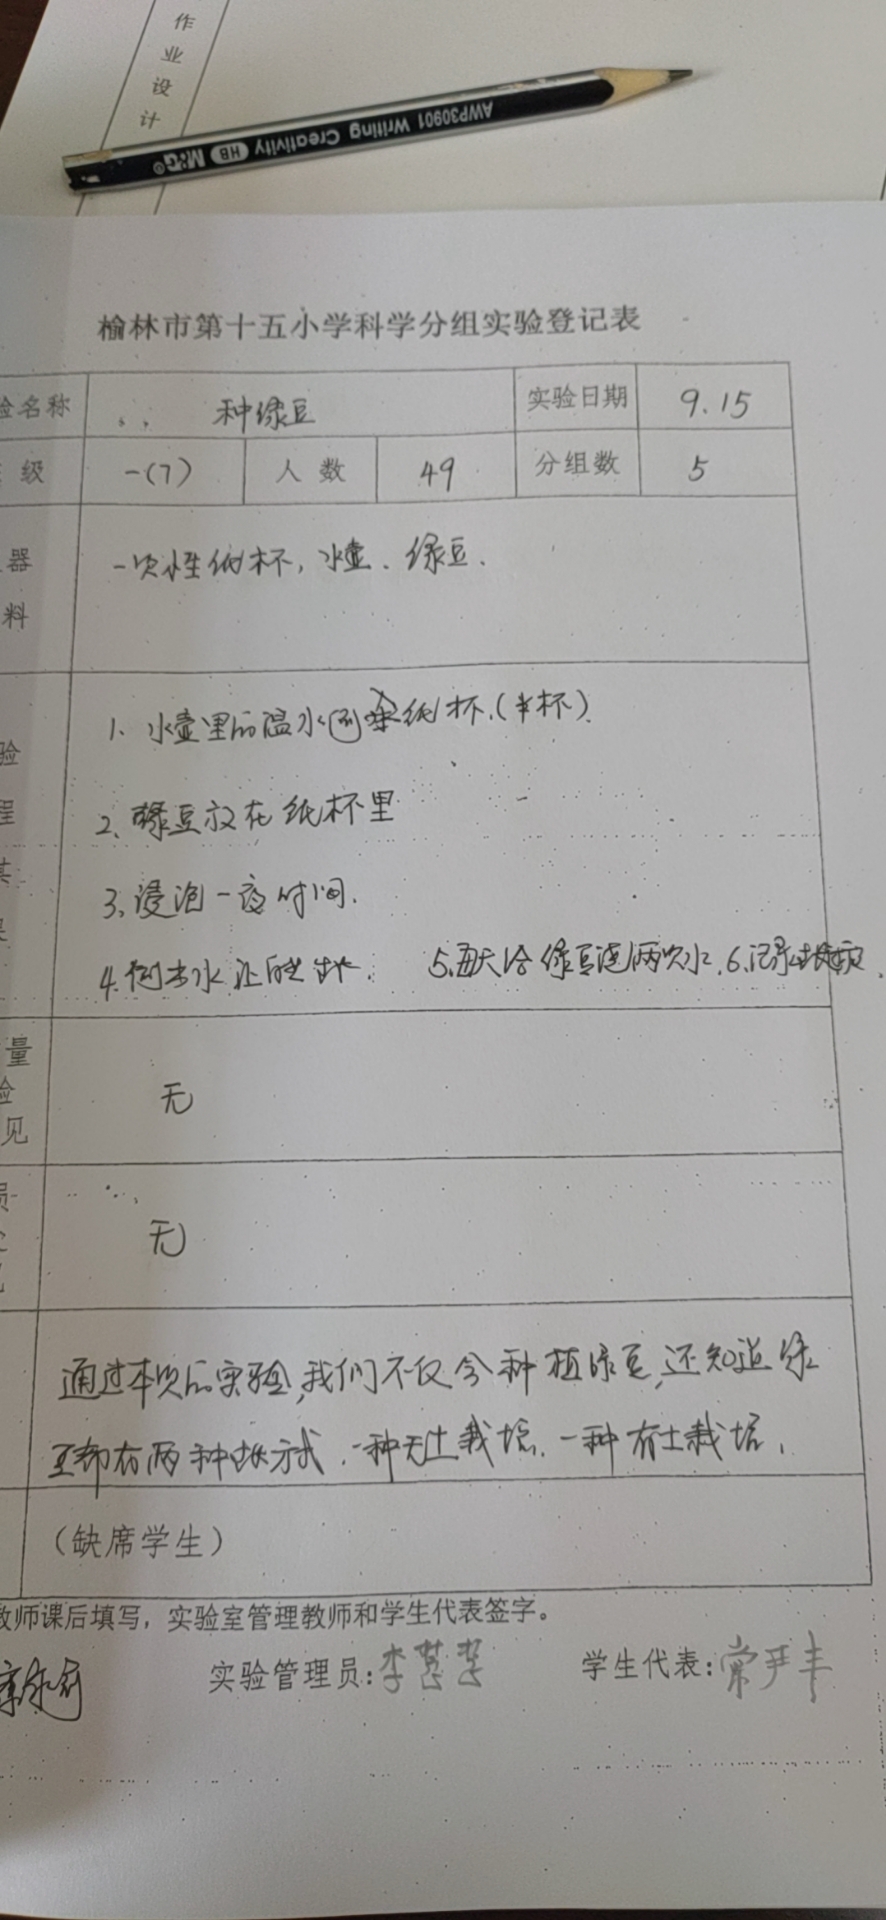 作
业
设
计
M&G HB Writing Creativity AWP30901
榆林市第十五小学科学分组实验登记表
验名称 种绿豆 实验日期 9.15
级 一(7) 人数 49 分组数 5
器 一次性纸杯，水壶、绿豆.
料
1、水壶里的温水倒 纸杯.(半杯).
验
程 2、绿豆放在纸杯里
其
3、浸泡一夜时间.
果
4.倒出水让 5.每天给绿豆浇两次水.6.记录
量
验 无
见
员
无
见
通过本次的实验,我们不仅会种植绿豆,还知道绿
豆都有两种 方式.一种无土栽培.一种有土栽培.
（缺席学生）
教师课后填写，实验室管理教师和学生代表签字。
实验管理员:李慧 学生代表:常